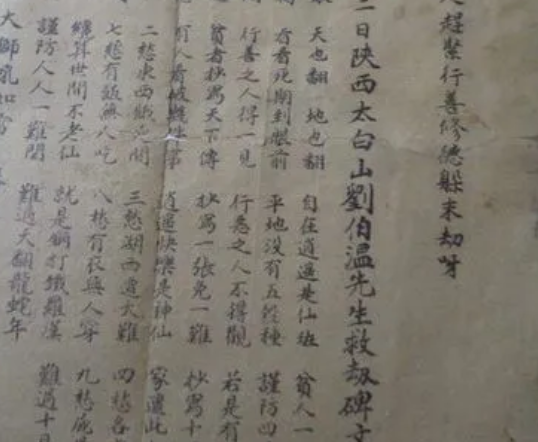 趕緊行善修德躲末劫呀
二日陝西太白山劉伯溫先生救劫碑文
天也翻 地也翻 自在逍遙是仙班 貧人一
看看死期到眼前 平地沒有五谷種 謹防四
行善之人得一見 行惡之人不得觀 若是有
貧者抄寫天下傳 抄寫一張免一難 抄寫十
有人看破 逍遙快樂是神仙 家遭此
二愁東西餓死 三愁湖西遭大難 四愁各
七愁有飯無人吃 八愁有衣無人穿 九愁屍
縱算世間不老仙 就是銅打鐵羅漢 難過十
謹防人人一難關 難過天翻龍蛇年
大獅吼如雷